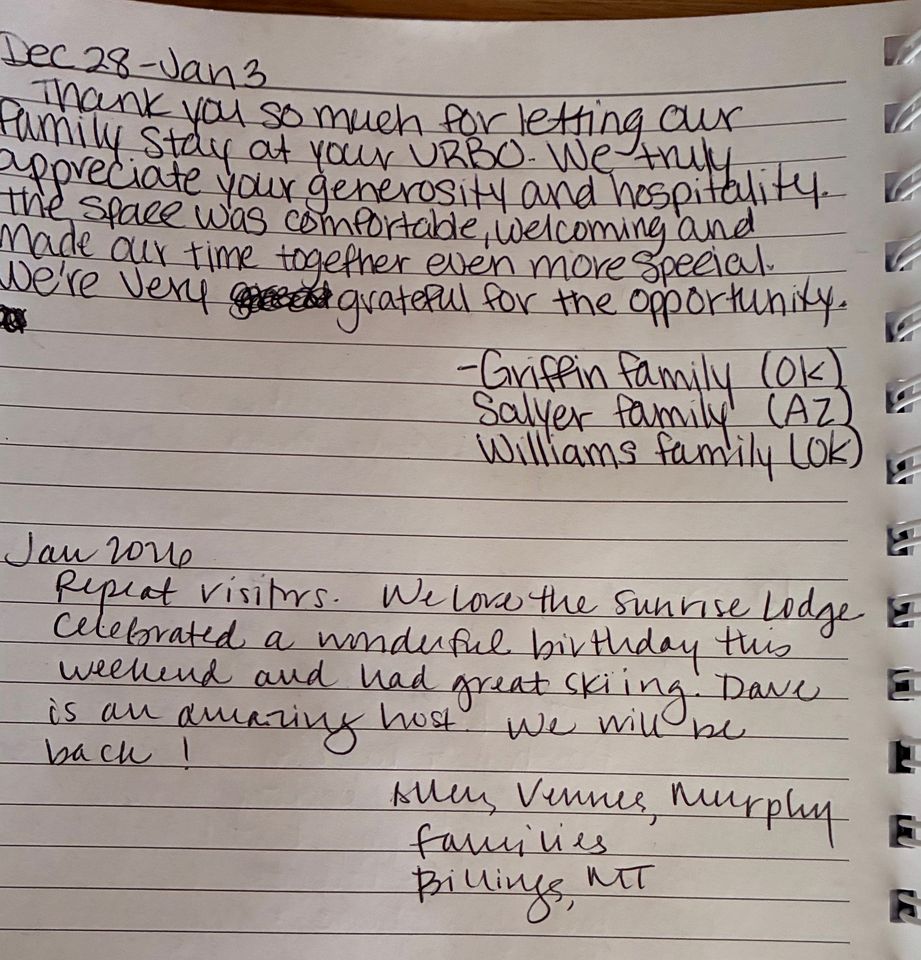 Dec 28-Jan 3
Thank you so much for letting our
family stay at your VRBO. We truly
appreciate your generosity and hospitality.
The space was comfortable, welcoming and
made our time together even more special.
We're very grateful for the opportunity.
-Griffin family (OK)
Salyer family (AZ)
Williams family (OK)
Jan 2026
Repeat visitors. We love the Sunrise Lodge
Celebrated a wonderful birthday this
weekend and had great skiing. Dave
is an amazing host. We will be
back!
Allen, Vennes, Murphy
families
Billings, MT